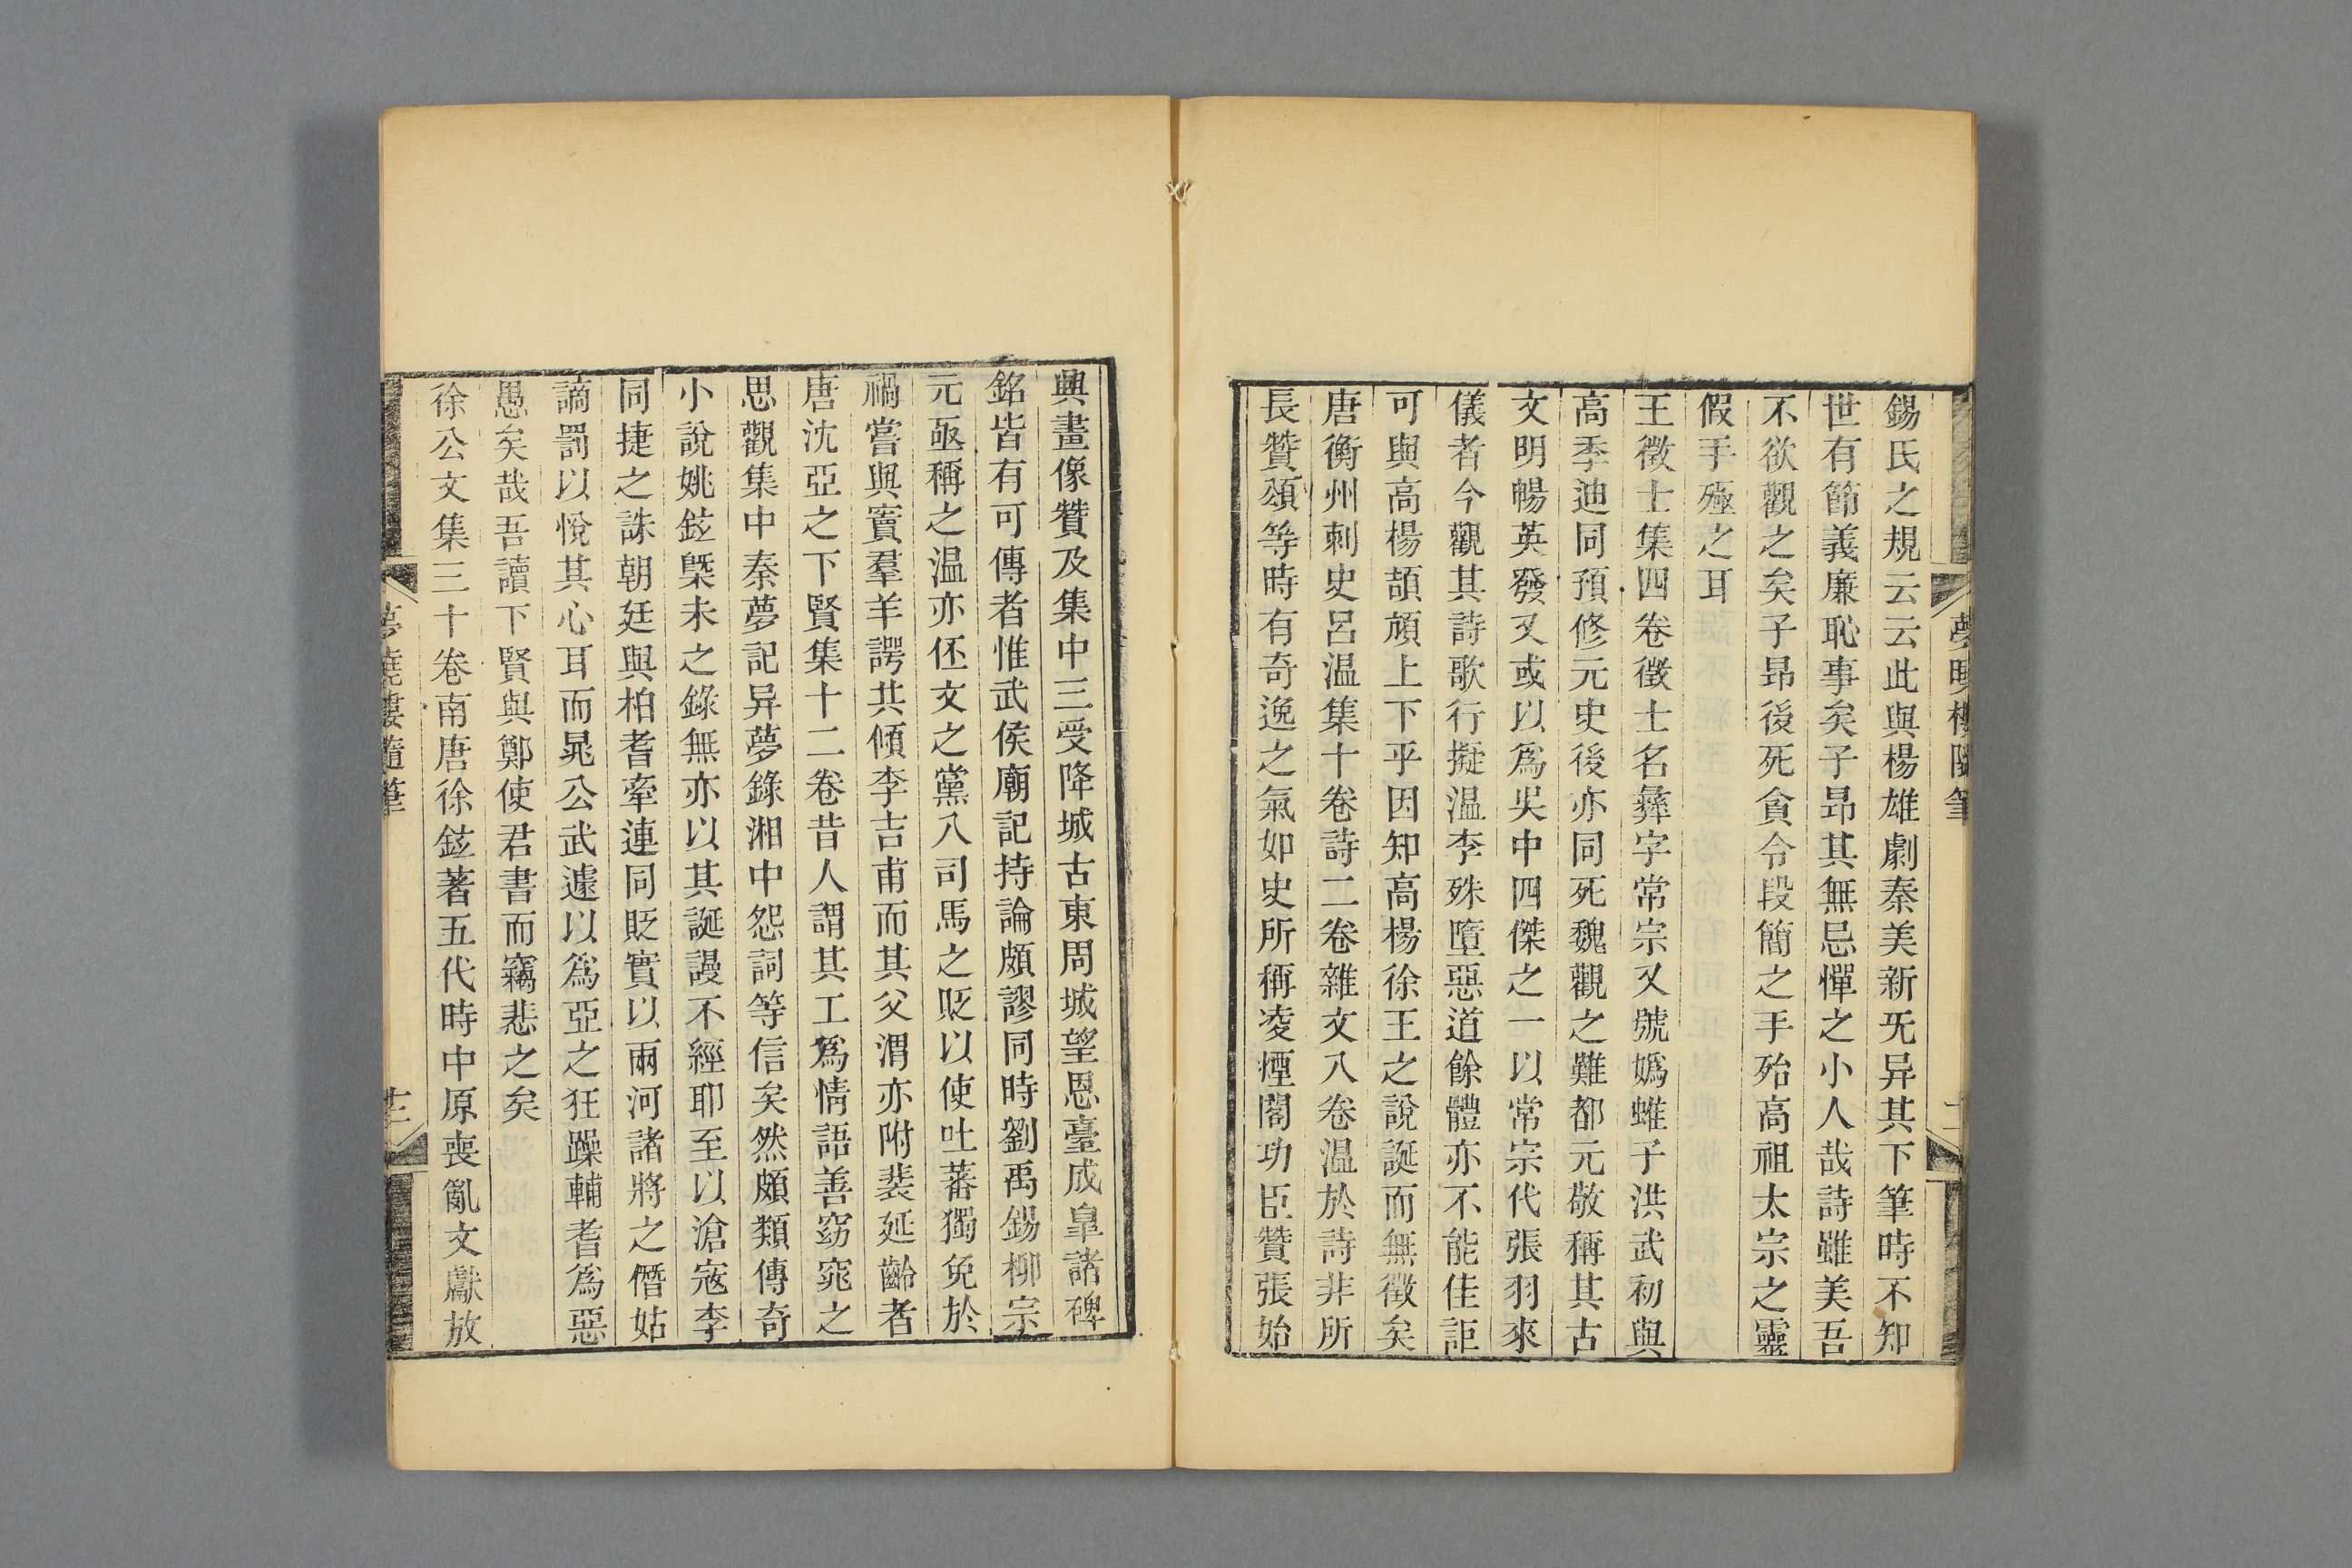 夢曉樓隨筆
錫氏之規云云此與楊雄劇秦美新旡异其下筆時不知
世有節義廉恥事矣子昂其無忌憚之小人哉詩雖美吾
不欲觀之矣子昂後死貪令段簡之手殆高祖太宗之靈
假手殛之耳
王徵士集四卷徵士名彝字常宗又號嬀蜼子洪武初與
高季迪同預修元史後亦同死魏觀之難都元敬稱其古
文明暢英發又或以為吳中四傑之一以常宗代張羽來
儀者今觀其詩歌行擬温李殊墮惡道餘體亦不能佳詎
可與高楊頡頏上下乎因知高楊徐王之說誕而無徵矣
唐衡州刺史呂温集十卷詩二卷雜文八卷温於詩非所
長贊頌等時有奇逸之氣如史所稱凌煙閣功臣贊張始
興畫像贊及集中三受降城古東周城望恩臺成皐諸碑
銘皆有可傳者惟武侯廟記持論頗謬同時劉禹錫柳宗
元亟稱之温亦伾文之黨八司馬之貶以使吐蕃獨免於
禍嘗與竇羣羊諤共傾李吉甫而其父渭亦附裴延齡者
唐沈亞之下賢集十二卷昔人謂其工爲情語善窈窕之
思觀集中秦夢記异夢錄湘中怨詞等信矣然頗類傳奇
小說姚鉉槩未之錄無亦以其誕謾不經耶至以滄寇李
同捷之誅朝廷與柏耆牽連同貶實以兩河諸將之僭姑
謫罰以悅其心耳而晁公武遽以爲亞之狂躁輔耆爲惡
愚矣哉吾讀下賢與鄭使君書而竊悲之矣
徐公文集三十卷南唐徐鉉著五代時中原喪亂文獻放
夢曉樓隨筆
十三